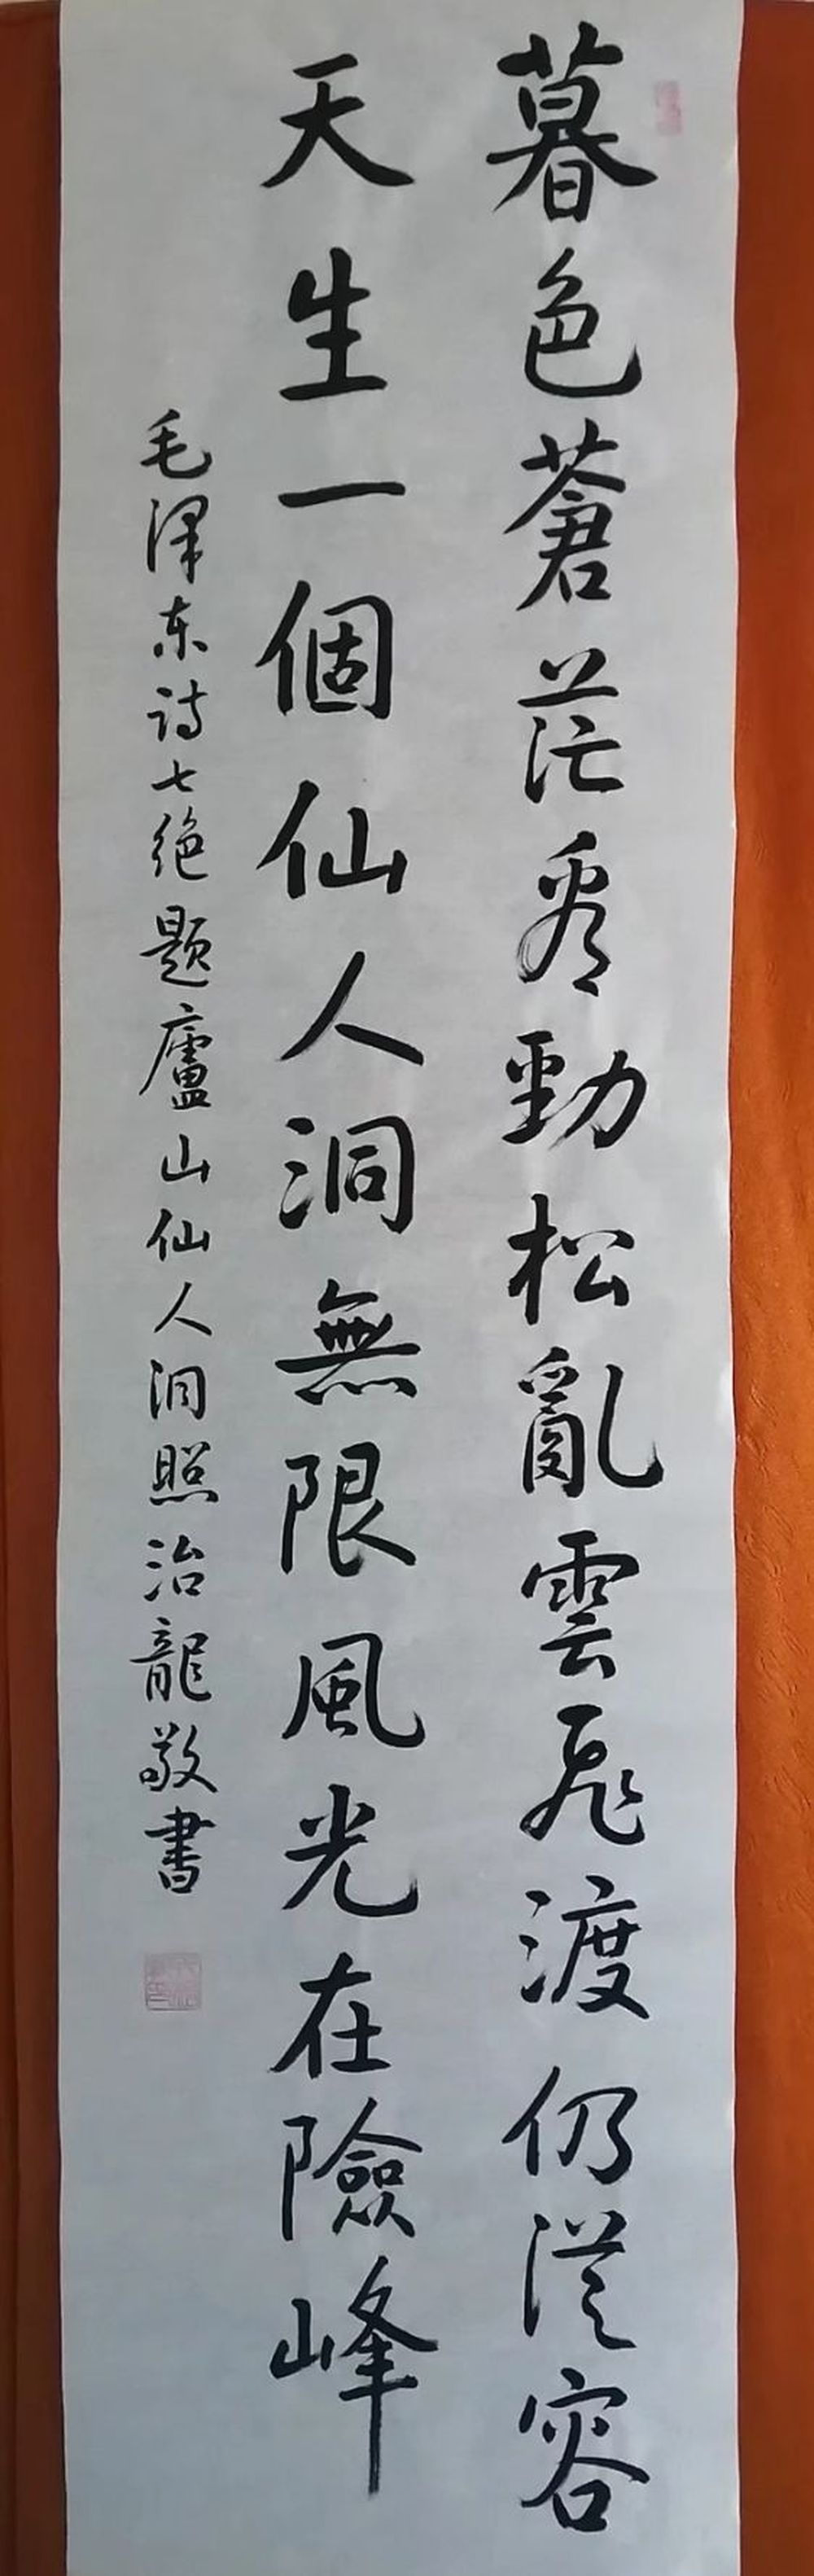 暮色蒼茫看勁松亂雲飛渡仍從容
天生一個仙人洞無限風光在險峰
毛泽东诗七绝题廬山仙人洞照治龍敬書